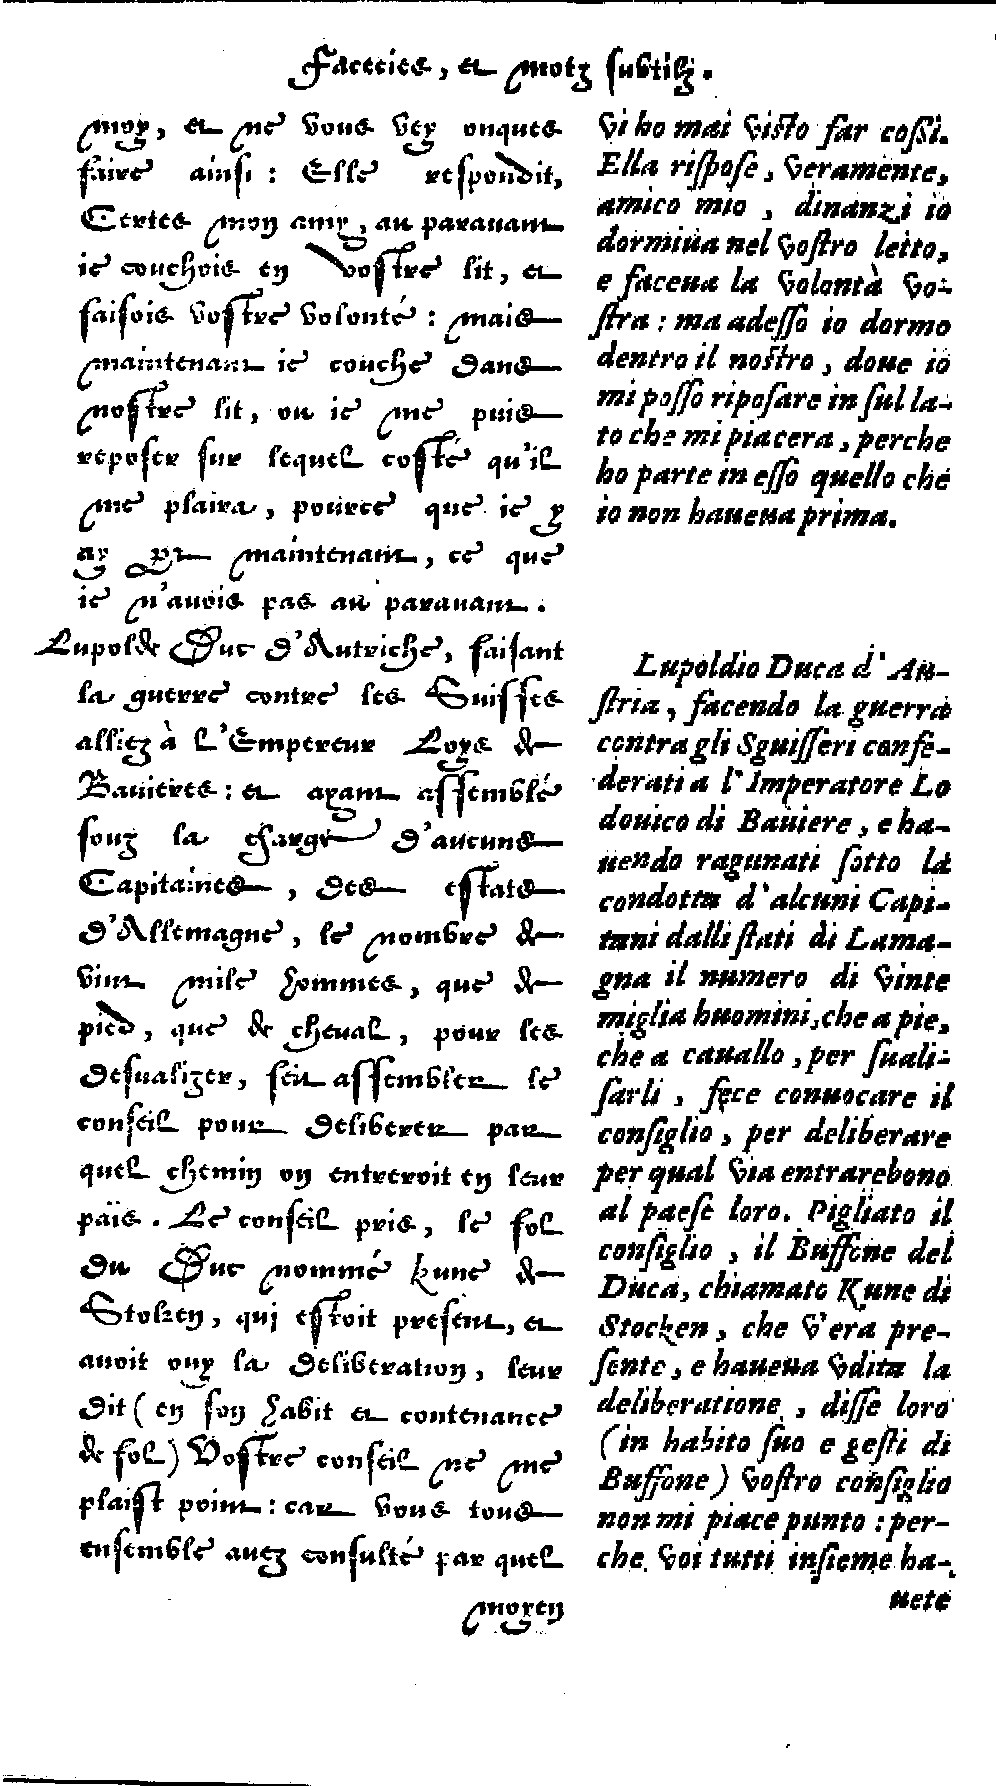 Facecies, et motz subtilz.
moy, et ne vous vey onques
faire ainsi : Elle respondit,
Certes mon amy, au paravant
ie couchois en vostre lit, et
faisois vostre volonté : mais
maintenant ie couche dans
nostre lit, ou ie me puis
reposer sur lequel costé qu'il
me plaira, pource que ie y
ay part maintenant, ce que
ie n'avois pas au paravant.
Lupolde Duc d'Autriche, faisant
la guerre contre les Suisses
alliez à l'Empereur Loys de
Bavieres : et ayant assemblé
souz la charge d'aucuns
Capitaines, des estats
d'Allemagne, le nombre de
vint mile hommes, que de
pied, que de cheval, pour les
desvalizer, feit assembler le
conseil pour deliberer par
quel chemin on entreroit en leur
païs. Le conseil pris, le fol
du Duc nommé Kune de
Stoken, qui estoit present, et
avoit ouy la deliberation, leur
dit (en son habit et contenance
de fol) Vostre conseil ne me
plaist point : car vous tous
ensemble avez consulté par quel
moyen
vi ho mai visto far cossi.
Ella rispose, veramente,
amico mio, dinanzi io
dormiua nel vostro letto,
e faceua la volontà vo-
stra : ma adesso io dormo
dentro il nostro, doue io
mi posso riposare in sul la-
to che mi piacera, perche
ho parte in esso quello che
io non haueua prima.
Lupoldio Duca d'Au-
stria, facendo la guerra
contra gli Sguisseri confe-
derati a l'Imperatore Lo
douico di Bauiere, e ha-
uendo ragunati sotto la
condotta d'alcuni Capi-
tani dalli stati di Lama-
gna il numero di vinte
miglia huomini, che a pie,
che a cauallo, per suali-
sarli, fece conuocare il
consiglio, per deliberare
per qual via entrarebono
al paese loro. Pigliato il
consiglio, il Buffone del
Duca, chiamato Kune di
Stocken, che v'era pre-
sente, e haueua vdita la
deliberatione, disse loro
(in habito suo e gesti di
Buffone) vostro consiglio
non mi piace punto : per-
che voi tutti insieme ha-
uete